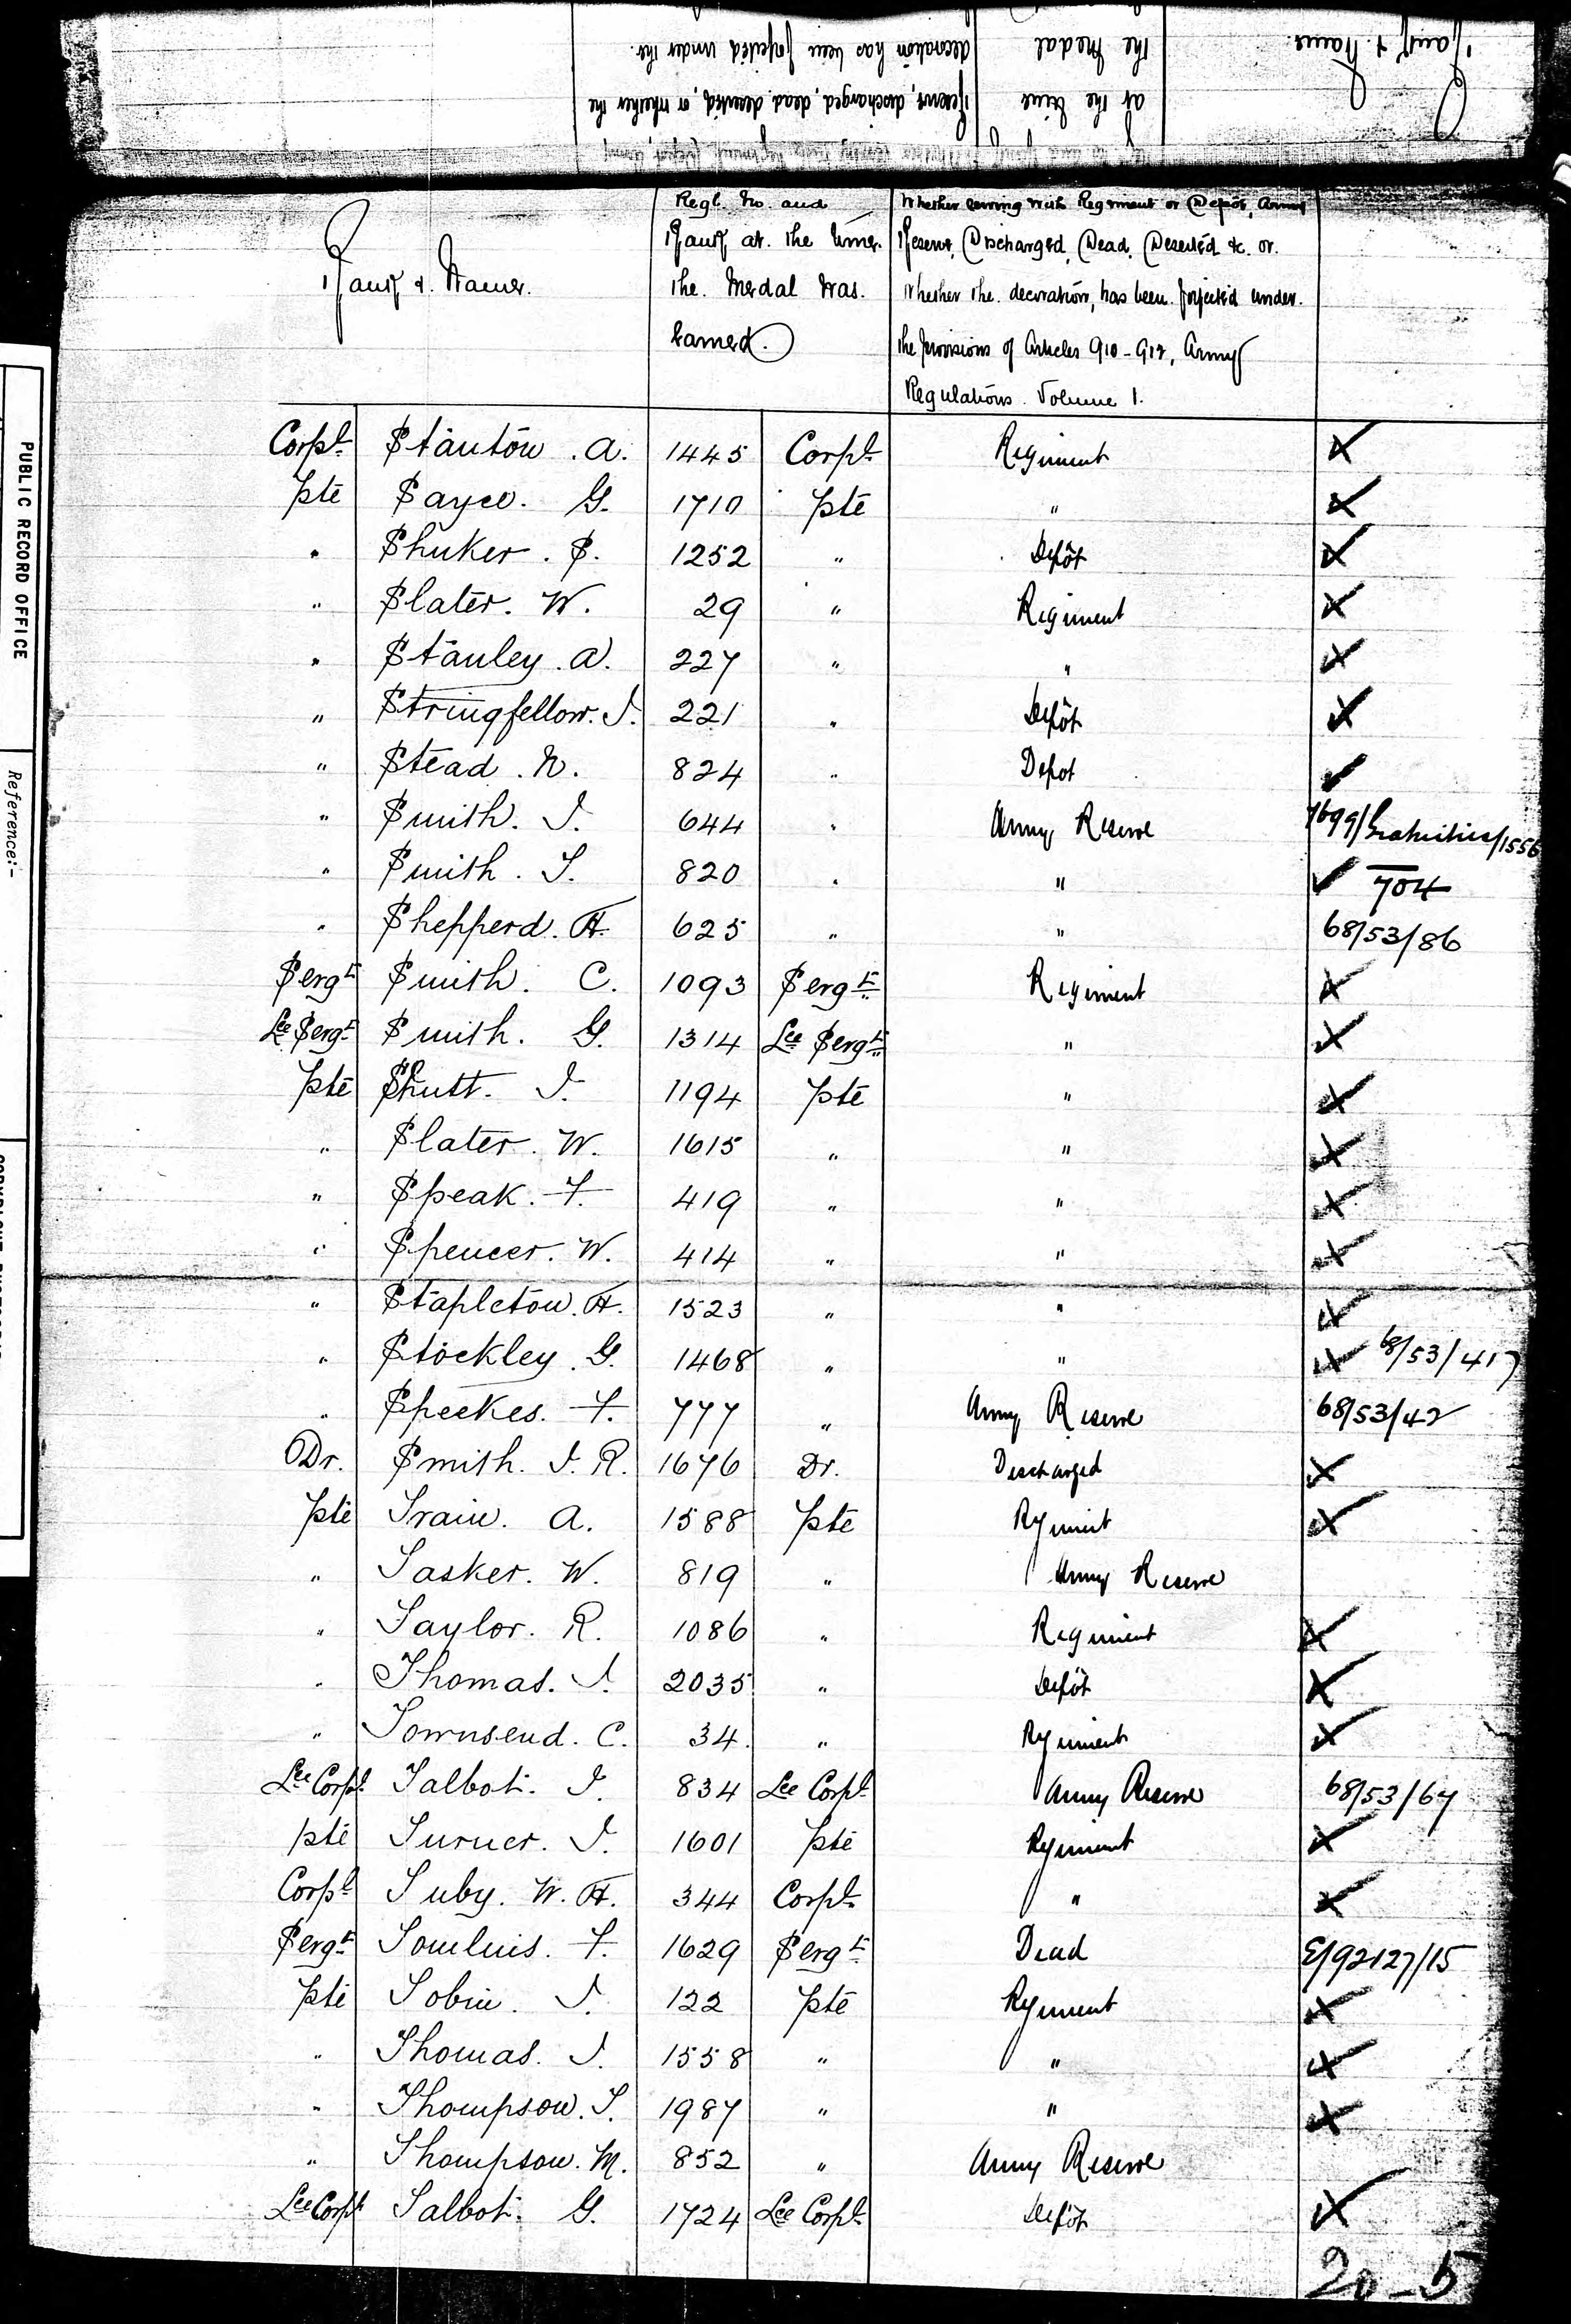 Rank & Name.
the Medal
decoration has been forfeited under the
at the time
Reserve, discharged, dead, deserted, or whether the
PUBLIC RECORD OFFICE
Reference:-
Rank & Name.
Regl. No. and
Rank at the time
the Medal was
Earned.
Whether serving with Regiment or Depôt, Army
Reserve, Discharged, Dead, Deserted &c. or
whether the decoration, has been forfeited under
the provisions of Articles 910-912, Army
Regulations. Volume 1.
Corpl. Stanton. A. 1445 Corpl. Regiment
Pte Sayce. G. 1710 Pte "
" Shuker. S. 1252 " Depôt
" Slater. W. 29 " Regiment
" Stanley. A. 227 " "
" Stringfellow. J. 221 " Depôt
" Stead. N. 824 " Depot
" Smith. J. 644 " Army Reserve 7699/Gratuities/1556
" Smith. T. 820 " " 704
" Shepperd. H. 625 " " 68/53/86
Sergt. Smith. C. 1093 Sergt. Regiment
Lce Sergt. Smith. G. 1314 Lce Sergt. "
Pte Shutt. J. 1194 Pte "
" Slater. W. 1615 " "
" Speak. F. 419 " "
" Spencer. W. 414 " "
" Stapleton. H. 1523 " "
" Stockley. G. 1468 " " 68/53/417
" Speekes. F. 777 " Army Reserve 68/53/42
Dr. Smith. J. R. 1676 Dr. Discharged
Pte Train. A. 1588 Pte Regiment
" Tasker. W. 819 " Army Reserve
" Taylor. R. 1086 " Regiment
" Thomas. J. 2035 " Depôt
" Townsend. C. 34. " Regiment
Lce Corpl. Talbot. J. 834 Lce Corpl. Army Reserve 68/53/67
Pte Turner. J. 1601 Pte Regiment
Corpl. Tuby. W. H. 344 Corpl. "
Sergt. Tomlins. F. 1629 Sergt. Dead E/92127/15
Pte Tobin. J. 122 Pte Regiment
" Thomas. J. 1558 " "
" Thompson. T. 1987 " "
" Thompson. M. 852 " Army Reserve
Lce Corpl. Talbot. G. 1724 Lce Corpl. Depôt
20-5